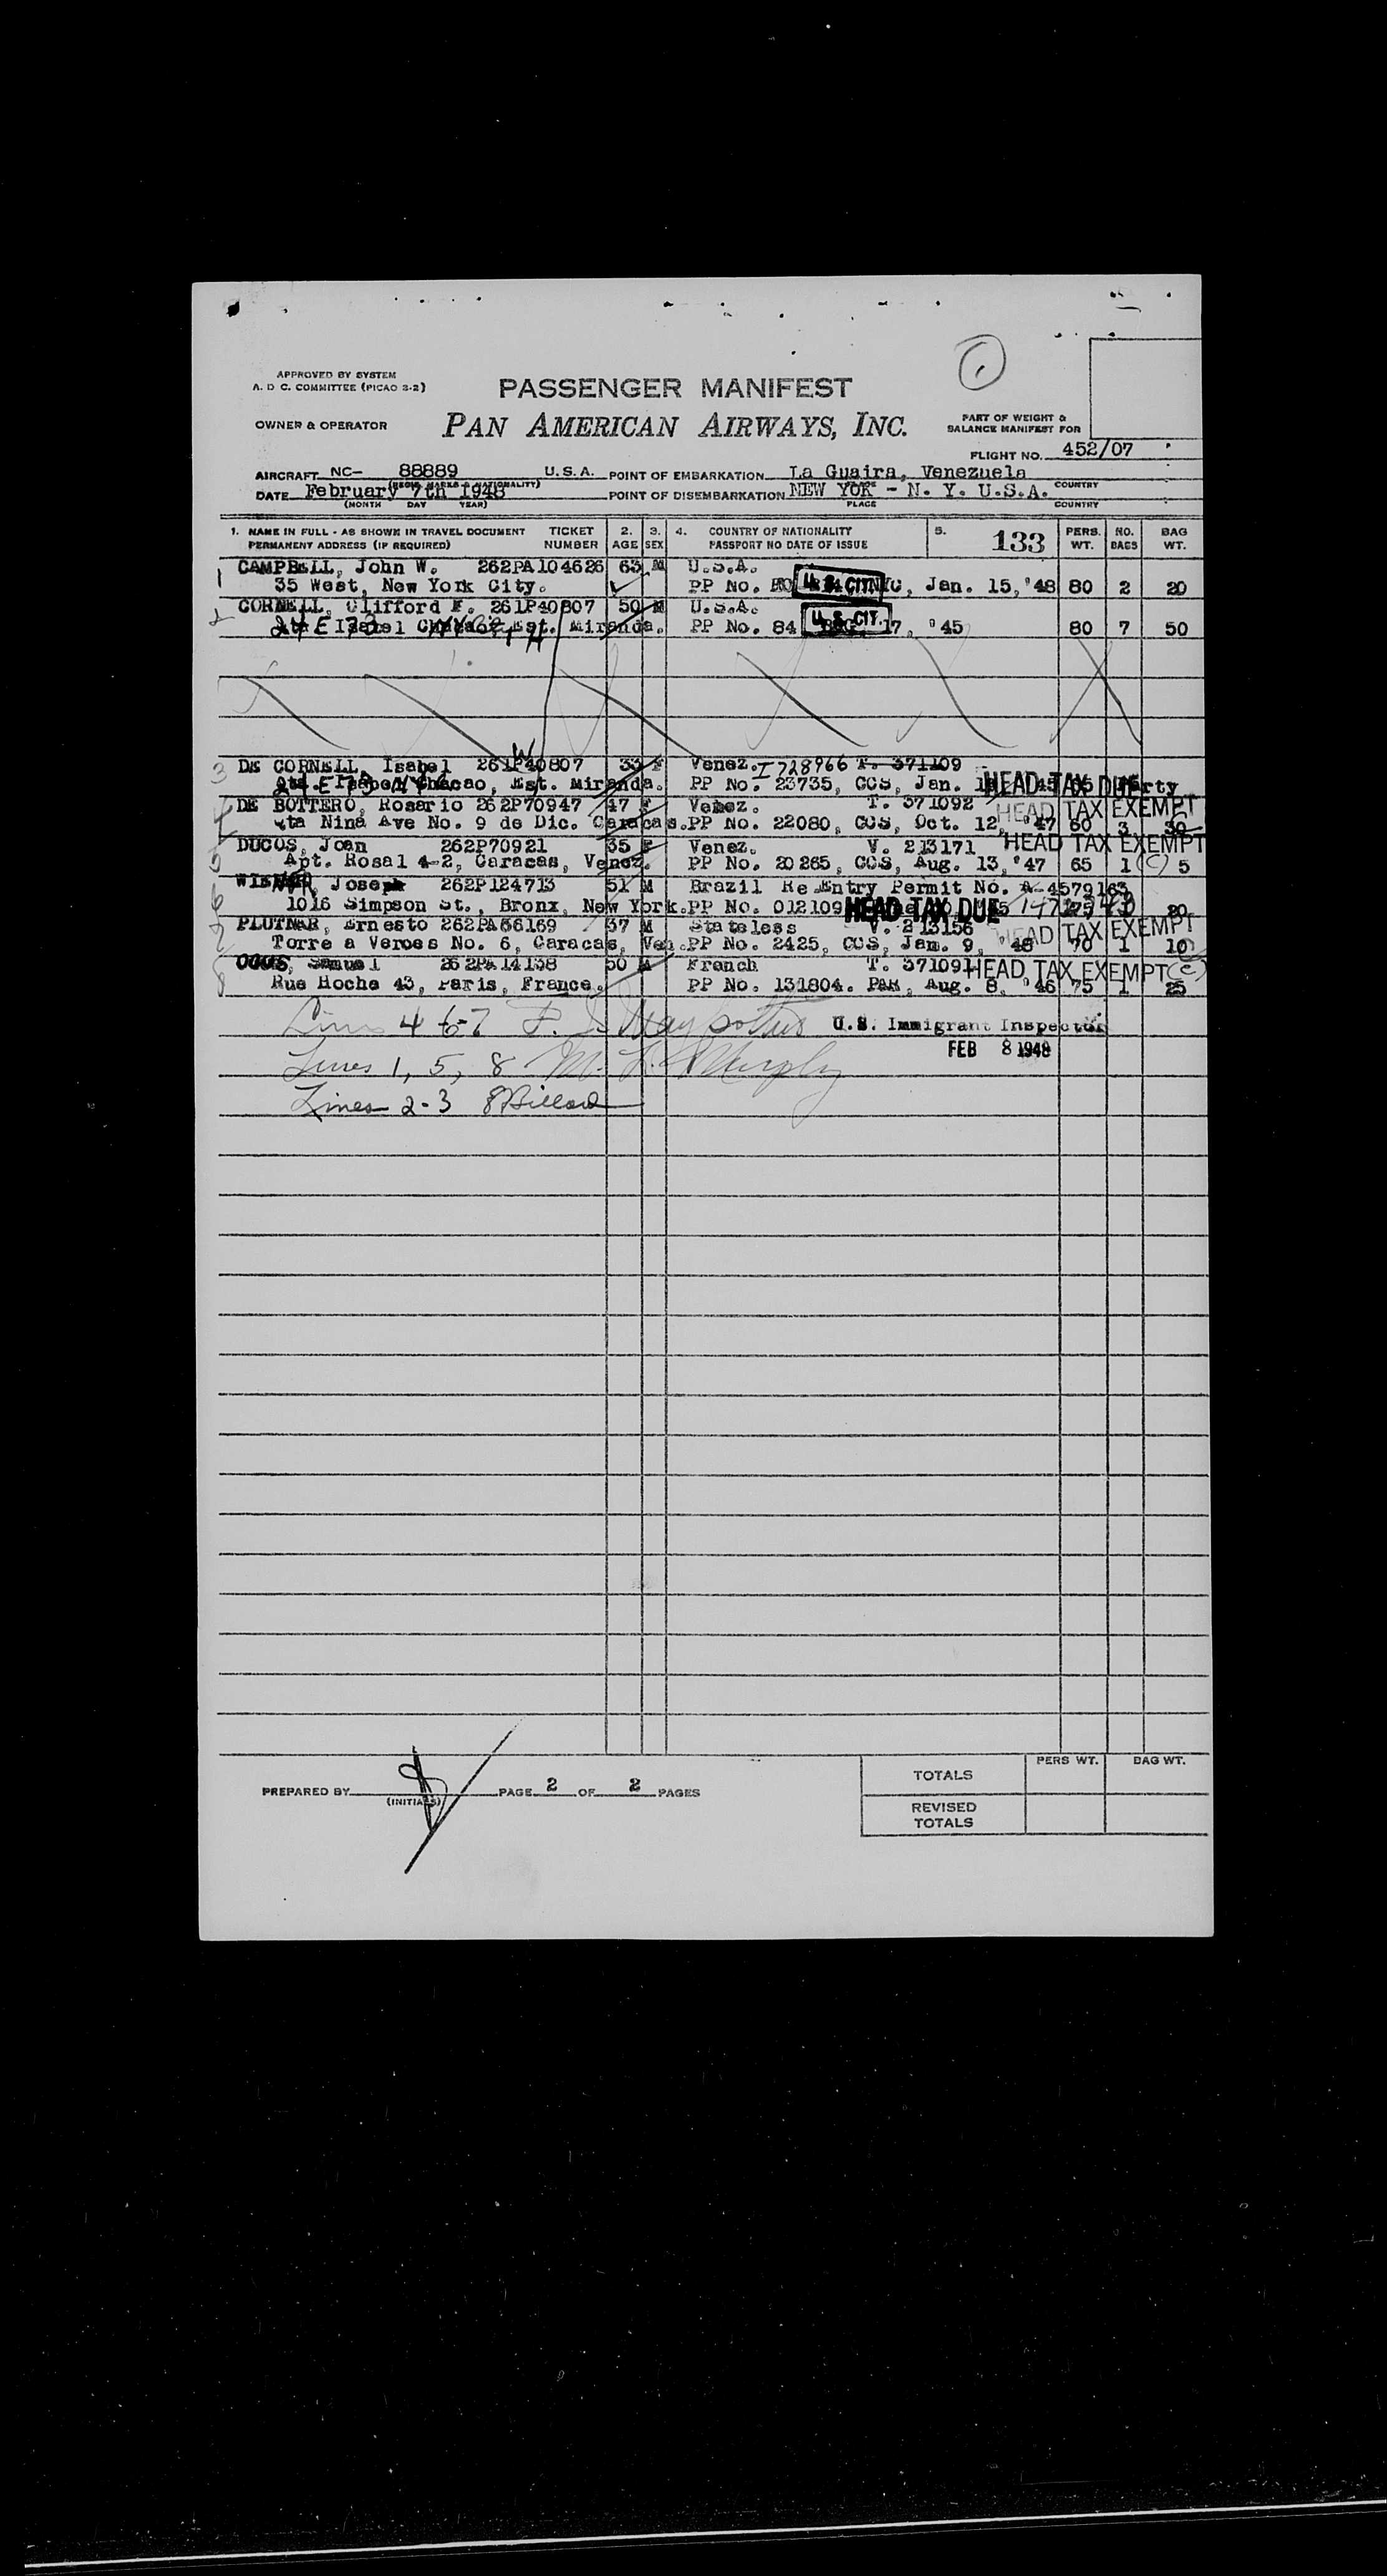 APPROVED BY SYSTEM
A. D C. COMMITTEE (PICAO 3-2)
PASSENGER MANIFEST
OWNER & OPERATOR
PAN AMERICAN AIRWAYS, INC.
PART OF WEIGHT &
BALANCE MANIFEST FOR
FLIGHT NO. 452/07
AIRCRAFT NC- 88889 U.S.A. POINT OF EMBARKATION La Guaira, Venezuela
DATE February 7th 1948 POINT OF DISEMBARKATION NEW YOK - N. Y. U.S.A. COUNTRY
(MONTH DAY YEAR) PLACE COUNTRY
1. NAME IN FULL - AS SHOWN IN TRAVEL DOCUMENT TICKET 2. 3. 4. COUNTRY OF NATIONALITY 5. 133 PERS. NO. BAG
PERMANENT ADDRESS (IF REQUIRED) NUMBER AGE SEX PASSPORT NO DATE OF ISSUE WT. BAGS WT.
1 CAMPBELL, John W. 262PA104626 63 M U.S.A.
35 West, New York City. PP No. U.S. CIT. Jan. 15, '48 80 2 20
2 CORNELL, Clifford F. 261P40807 50 M U.S.A.
Isabel Est. Miranda. PP No. 84 U.S. CIT. 17, '45 80 7 50
3 DE CORNELL, Isabel 261P40807 33 F Venez. I728966 T. 371109
Chacao, Est. Miranda. PP No. 23735, CCS, Jan. HEAD TAX DUE
4 DE BOTTERO, Rosario 262P70947 47 F Venez. T. 371092 HEAD TAX EXEMPT
Qta Nina Ave No. 9 de Dic. Caracas. PP No. 22080, CCS, Oct. 12, '47 60 3 30
5 DUCOS, Joan 262P70921 35 F Venez. V. 213171 HEAD TAX EXEMPT
Apt. Rosal 4-2, Caracas, Venez. PP No. 20265, CCS, Aug. 13, '47 65 1 (C) 5
6 Joseph 262P124713 51 M Brazil Re Entry Permit No. A-4579163
1016 Simpson St., Bronx, New York. PP No. 012109 HEAD TAX DUE 20
7 PLUTNAR, Ernesto 262PA66169 37 M Stateless V. 213156 HEAD TAX EXEMPT
Torre a Veroes No. 6, Caracas, Ven. PP No. 2425, CCS, Jan. 9, '48 70 1 10
8 Samuel 262PA14138 50 M French T. 371091 HEAD TAX EXEMPT (C)
Rue Hoche 43, Paris, France. PP No. 131804. PAR, Aug. 8, '46 75 1 25
Lines 4-6-7 U.S. Immigrant Inspector
FEB 8 1948
Lines 1, 5, 8 M. L. Murphy
Lines 2-3
PREPARED BY (INITIALS) PAGE 2 OF 2 PAGES
PERS WT. BAG WT.
TOTALS
REVISED
TOTALS